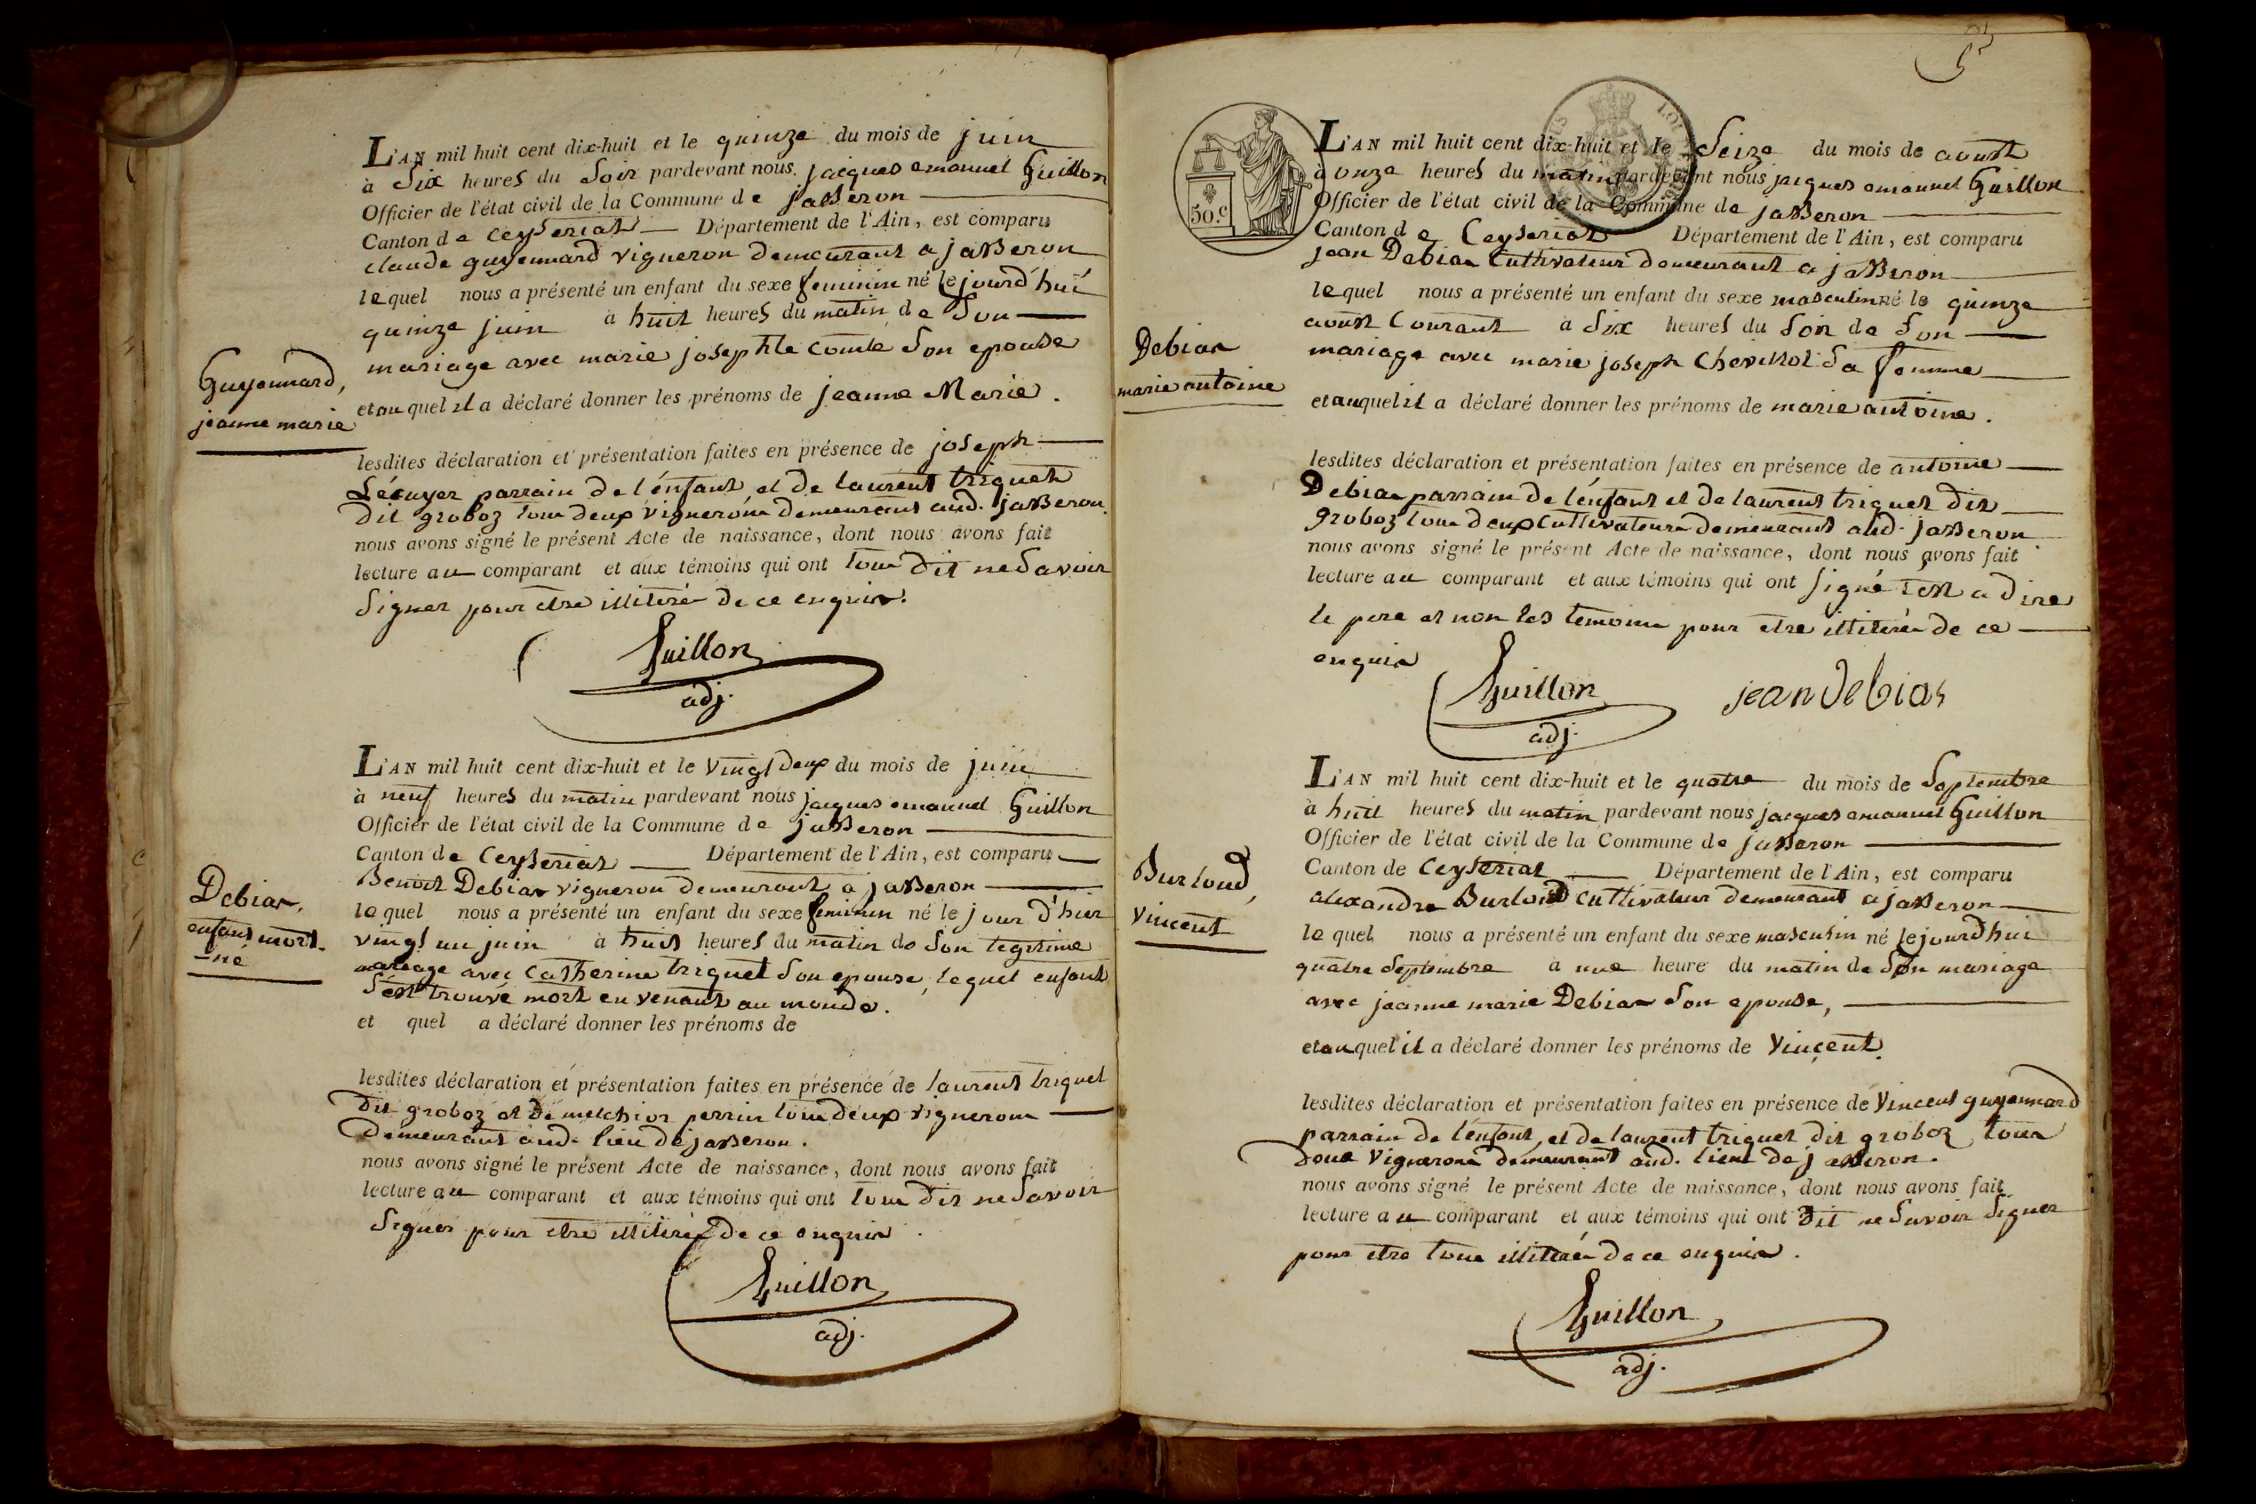 L'AN mil huit cent dix-huit et le quinze du mois de juin
à Six heures du Soir pardevant nous jacques emanuel Guillon
Officier de l'état civil de la Commune de jasseron
Canton de Ceyseriat Département de l'Ain, est comparu
claude guyennard vigneron demeurant a jasseron
lequel nous a présenté un enfant du sexe feminin né le jourd'hui
quinze juin à huit heures du matin de Son
mariage avec marie josephte Comte Son epouse
Guyennard,
jeanne marie
et au quel il a déclaré donner les prénoms de jeanne Marie.
lesdites déclaration et présentation faites en présence de joseph
Lécuyer parrain de l'énfant et de laurent triquet
dit groboz tous deux vignerons demeurant aud. jasseron.
nous avons signé le présent Acte de naissance, dont nous avons fait
lecture au comparant et aux témoins qui ont tous dit ne Savoir
Signer pour etre illitéré de ce enquis.
Guillon
adj.
L'AN mil huit cent dix-huit et le vingt deux du mois de juin
à neuf heures du matin pardevant nous jacques emanuel Guillon
Officier de l'état civil de la Commune de jasseron
Canton de Ceyseriat Département de l'Ain, est comparu
Benoit Debias vigneron demeurant a jasseron
lequel nous a présenté un enfant du sexe feminin né le jour d'hier
vingt un juin à huit heures du matin de Son legitime
mariage avec Catherine triquet Son epouse, lequel enfant
S'est trouvé mort en venant au monde.
Debias,
enfant mort-
-né
et quel a déclaré donner les prénoms de
lesdites déclaration et présentation faites en présence de laurent triquet
dit groboz et de melchior perrin tous deux vignerons
demeurant aud. lieu de jasseron.
nous avons signé le présent Acte de naissance, dont nous avons fait
lecture au comparant et aux témoins qui ont tous dit ne Savoir
Signer pour etre illitéré de ce enquis.
Guillon
adj.
50.c
L'AN mil huit cent dix-huit et le Seize du mois de aoust
à onze heures du matin pardevant nous jacques emanuel Guillon
Officier de l'état civil de la Commune de jasseron
Canton de Ceyseriat Département de l'Ain, est comparu
jean Debias Cultivateur demeurant a jasseron
lequel nous a présenté un enfant du sexe masculin né le quinze
aoust Courant à Six heures du Soir de Son
mariage avec marie joseph Chevillot Sa femme
Debias
marie antoine
et auquel il a déclaré donner les prénoms de marie antoine.
lesdites déclaration et présentation faites en présence de antoine
Debias parrain de l'énfant et de laurent triquet dit
groboz tous deux Cultivateurs demeurant aud. jasseron
nous avons signé le présent Acte de naissance, dont nous avons fait
lecture au comparant et aux témoins qui ont Signé c'est a dire
le pere et non les temoins pour etre illitérés de ce
enquis
Guillon
adj.
jean debias
L'AN mil huit cent dix-huit et le quatre du mois de Septembre
à huit heures du matin pardevant nous jacques emanuel Guillon
Officier de l'état civil de la Commune de jasseron
Canton de Ceyseriat Département de l'Ain, est comparu
alexandre Burloud Cultivateur demeurant a jasseron
lequel nous a présenté un enfant du sexe masculin né lejourd'hui
quatre Septembre à une heure du matin de Son mariage
avec jeanne marie Debias Son epouse,
Burloud,
Vincent
et au quel il a déclaré donner les prénoms de Vincent.
lesdites déclaration et présentation faites en présence de Vincent guyennard
parrain de l'enfant, et de laurent triquet dit groboz, tous
deux Vignerons demeurant aud. lieu de jasseron.
nous avons signé le présent Acte de naissance, dont nous avons fait
lecture au comparant et aux témoins qui ont dit ne Savoir Signer
pour etre tous illitérés de ce enquis.
Guillon
adj.